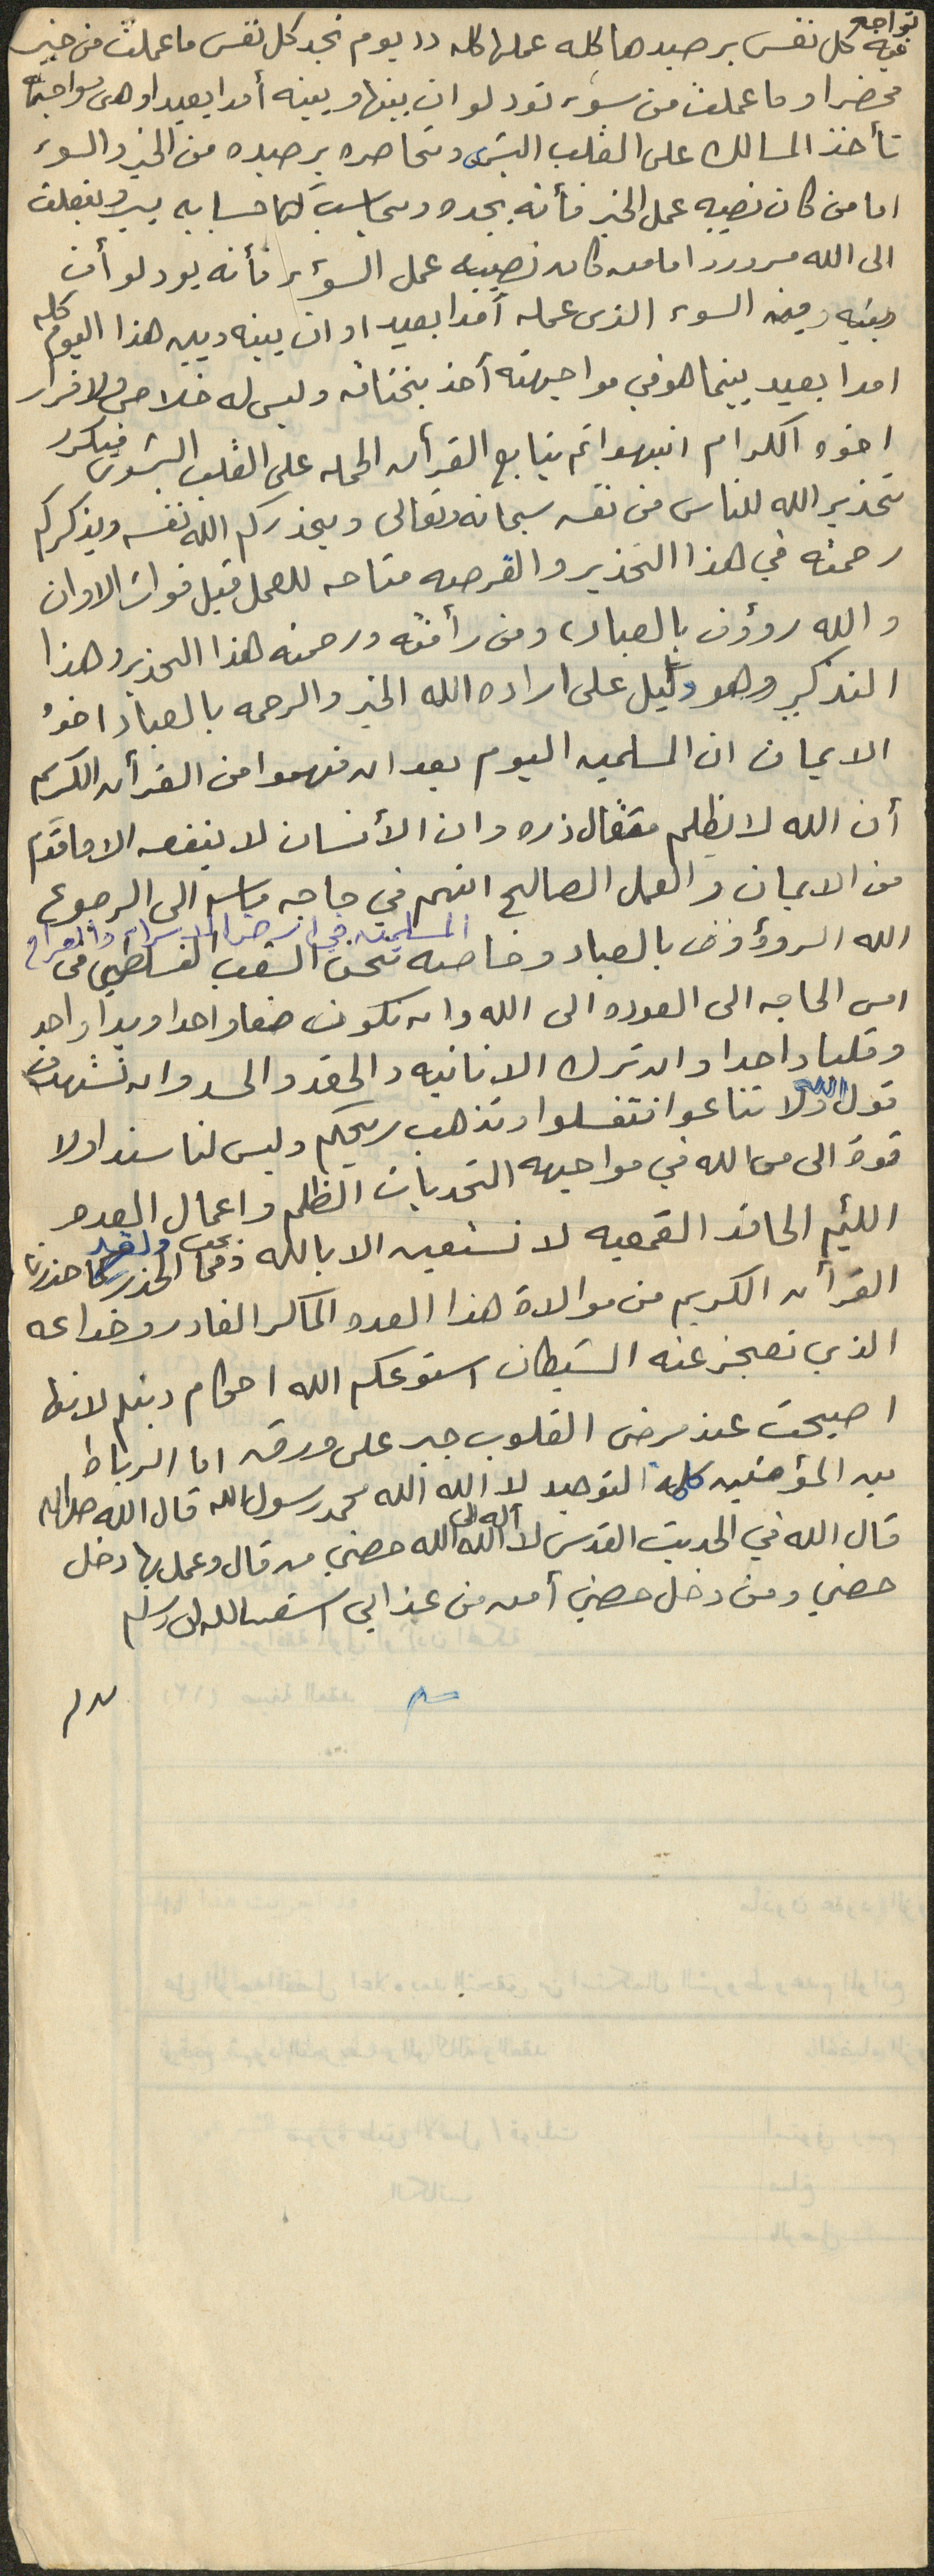 تواجه
فيه كل نفس برصيدها كله عملها كله )) يوم تجد كل نفس ما عملت من خير
محضرا وما عملت من سوء تود لو ان بينها وبينه أمدا بعيدا وهى مواجهة
تأخذ المسالك على القلب البشرى وتحاصره برصيده من الخير والسوء
اما من كان نصيبه عمل الخير فأنه يجده ويحاسب حسابه يسر وينقلب
الى الله مسرور اما من كان نصيبه عمل السؤء فأنه يود لو أن
بينه وبين السوء الذى عمله أمدا بعيد او ان بينه وبين هذا اليوم كله
امدا بعيد بينما هو في مواجهته آخذ بخناقه وليس له خلاص ولا فرار
اخوه الكرام انتبهوا ثم يتابع القرأن الحمله على القلب البشرى فيكرر
تحذير الله للناس من نفسه سبحانه وتعالى ويحذركم الله نفسه ويذكركم
رحمته في هذا التحذير والفرصه متاحه للعمل قبل فوات الاوان
والله رووف بالعباد، ومن رأفته ورحمته هذا التحذير وهذا
التذكير وهو دليل على اراده الله الخير والرحمه بالعباد اخوة
الايمان ان المسلمين اليوم بعد ان فهموا من القرأن الكريم
أن الله لا يظلم مثقال ذره وان الأنسان لا ينفعه الا ما قدم
من الايمان والعمل الصالح انهم في حاجه ماسه الى الرجوع
المسلمين في ارض الاسراء والمعراج
الله الرووف بالعباد وخاصه نحن الشعب الفلسطيني فى
امس الحاجه الى العوده الى الله وان نكون صفا واحدا ويدا واحد
وقلبا واحدا وان نترك الانانيه والحقد والحسد وان
قول الله ولا تنازعوا فتفشلوا وتذهب ريحكم وليس لنا سندا ولا
قوة الى من الله في مواجهه التحديات الظلم واعمال العدو
اللئيم الحاقد القمعيه لا نستعين الا بالله الحذر كما حذرنا
القرأن الكريم من موالاة هذا العدو الماكر الغادر وخداعه
الذي تعجز عنه الشيطان استودعكم الله احكام دينكم لانها
اصبحت عند مرضى القلوب حبر على ورق اما الرباط
بين المؤمنين كلمة التوحيد لا الله الله محمد رسول الله قال الله
قال الله في الحديث القدسى لا اله الى الله حصني من قال وعمل بها دخل
حصني ومن دخل حصني أمن من عذابي